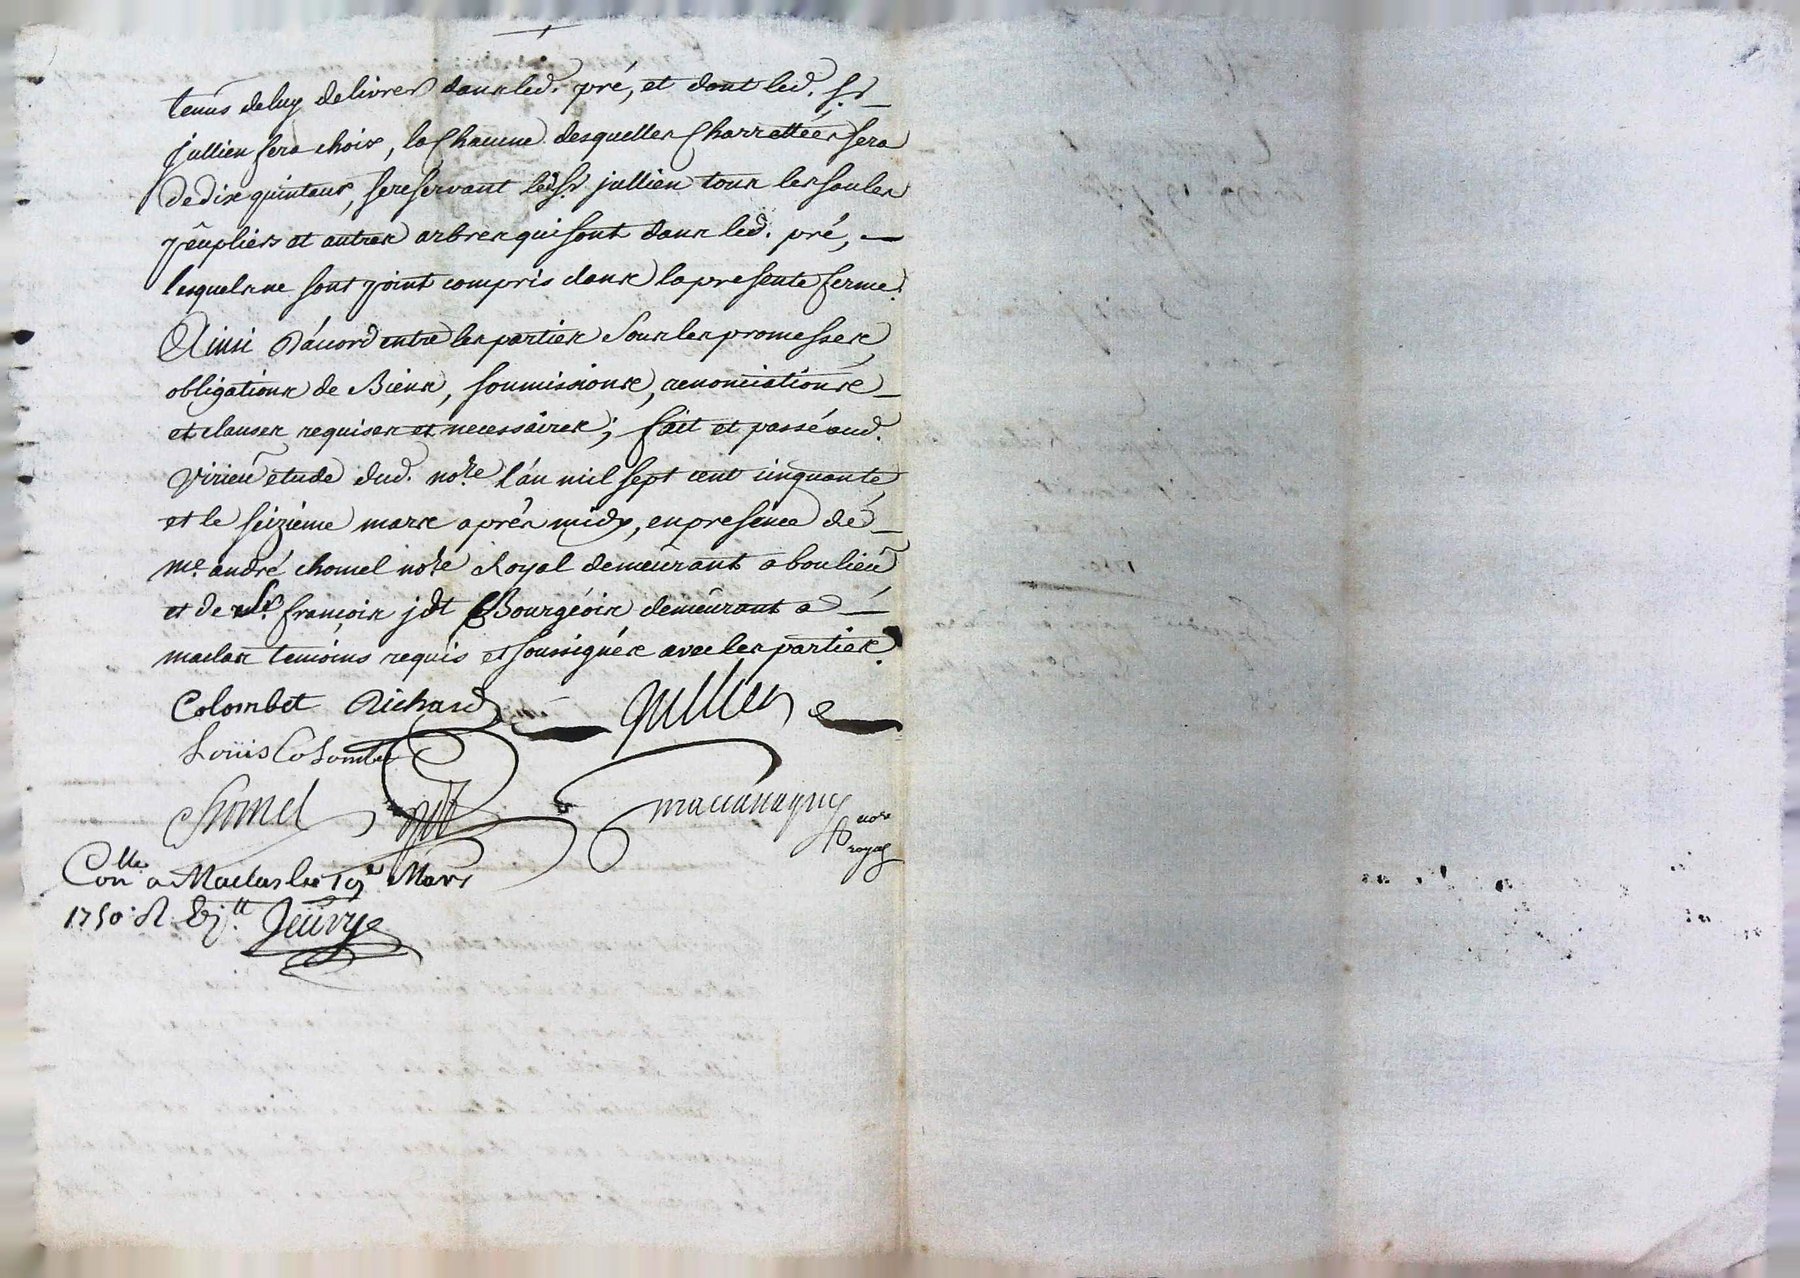 tenus de luy delivrer dans led. pré, et dont led. Sr
jullien fera choix, la Chacune desquelles Charrettées sera
de dix quintaux, se reservant led Sr. jullien tous les saules
peûpliers et autres arbres qui sont dans led. pré,
lesquels ne sont point compris dans la presente ferme.
Ainsi D'acord entre les parties Sous les promesses,
obligations de Biens, soumissions, renonciations
et clauses requises et necessaires; fait et passé aud.
Virieu etude dud. nore l'an mil sept cent cinquante
et le seizième mars aprês midy, en presence de
me. andré chomel nore Royal demeurant a boulieu
et de Sr. françois jdt Bourgéois demeurant a
maclas temoins requis et soussignés avec les parties.
Colombet Richard Jullien
Loüis Colombet
Chomel
nore royal
Conlle a Maclas le 19e Mars
1750